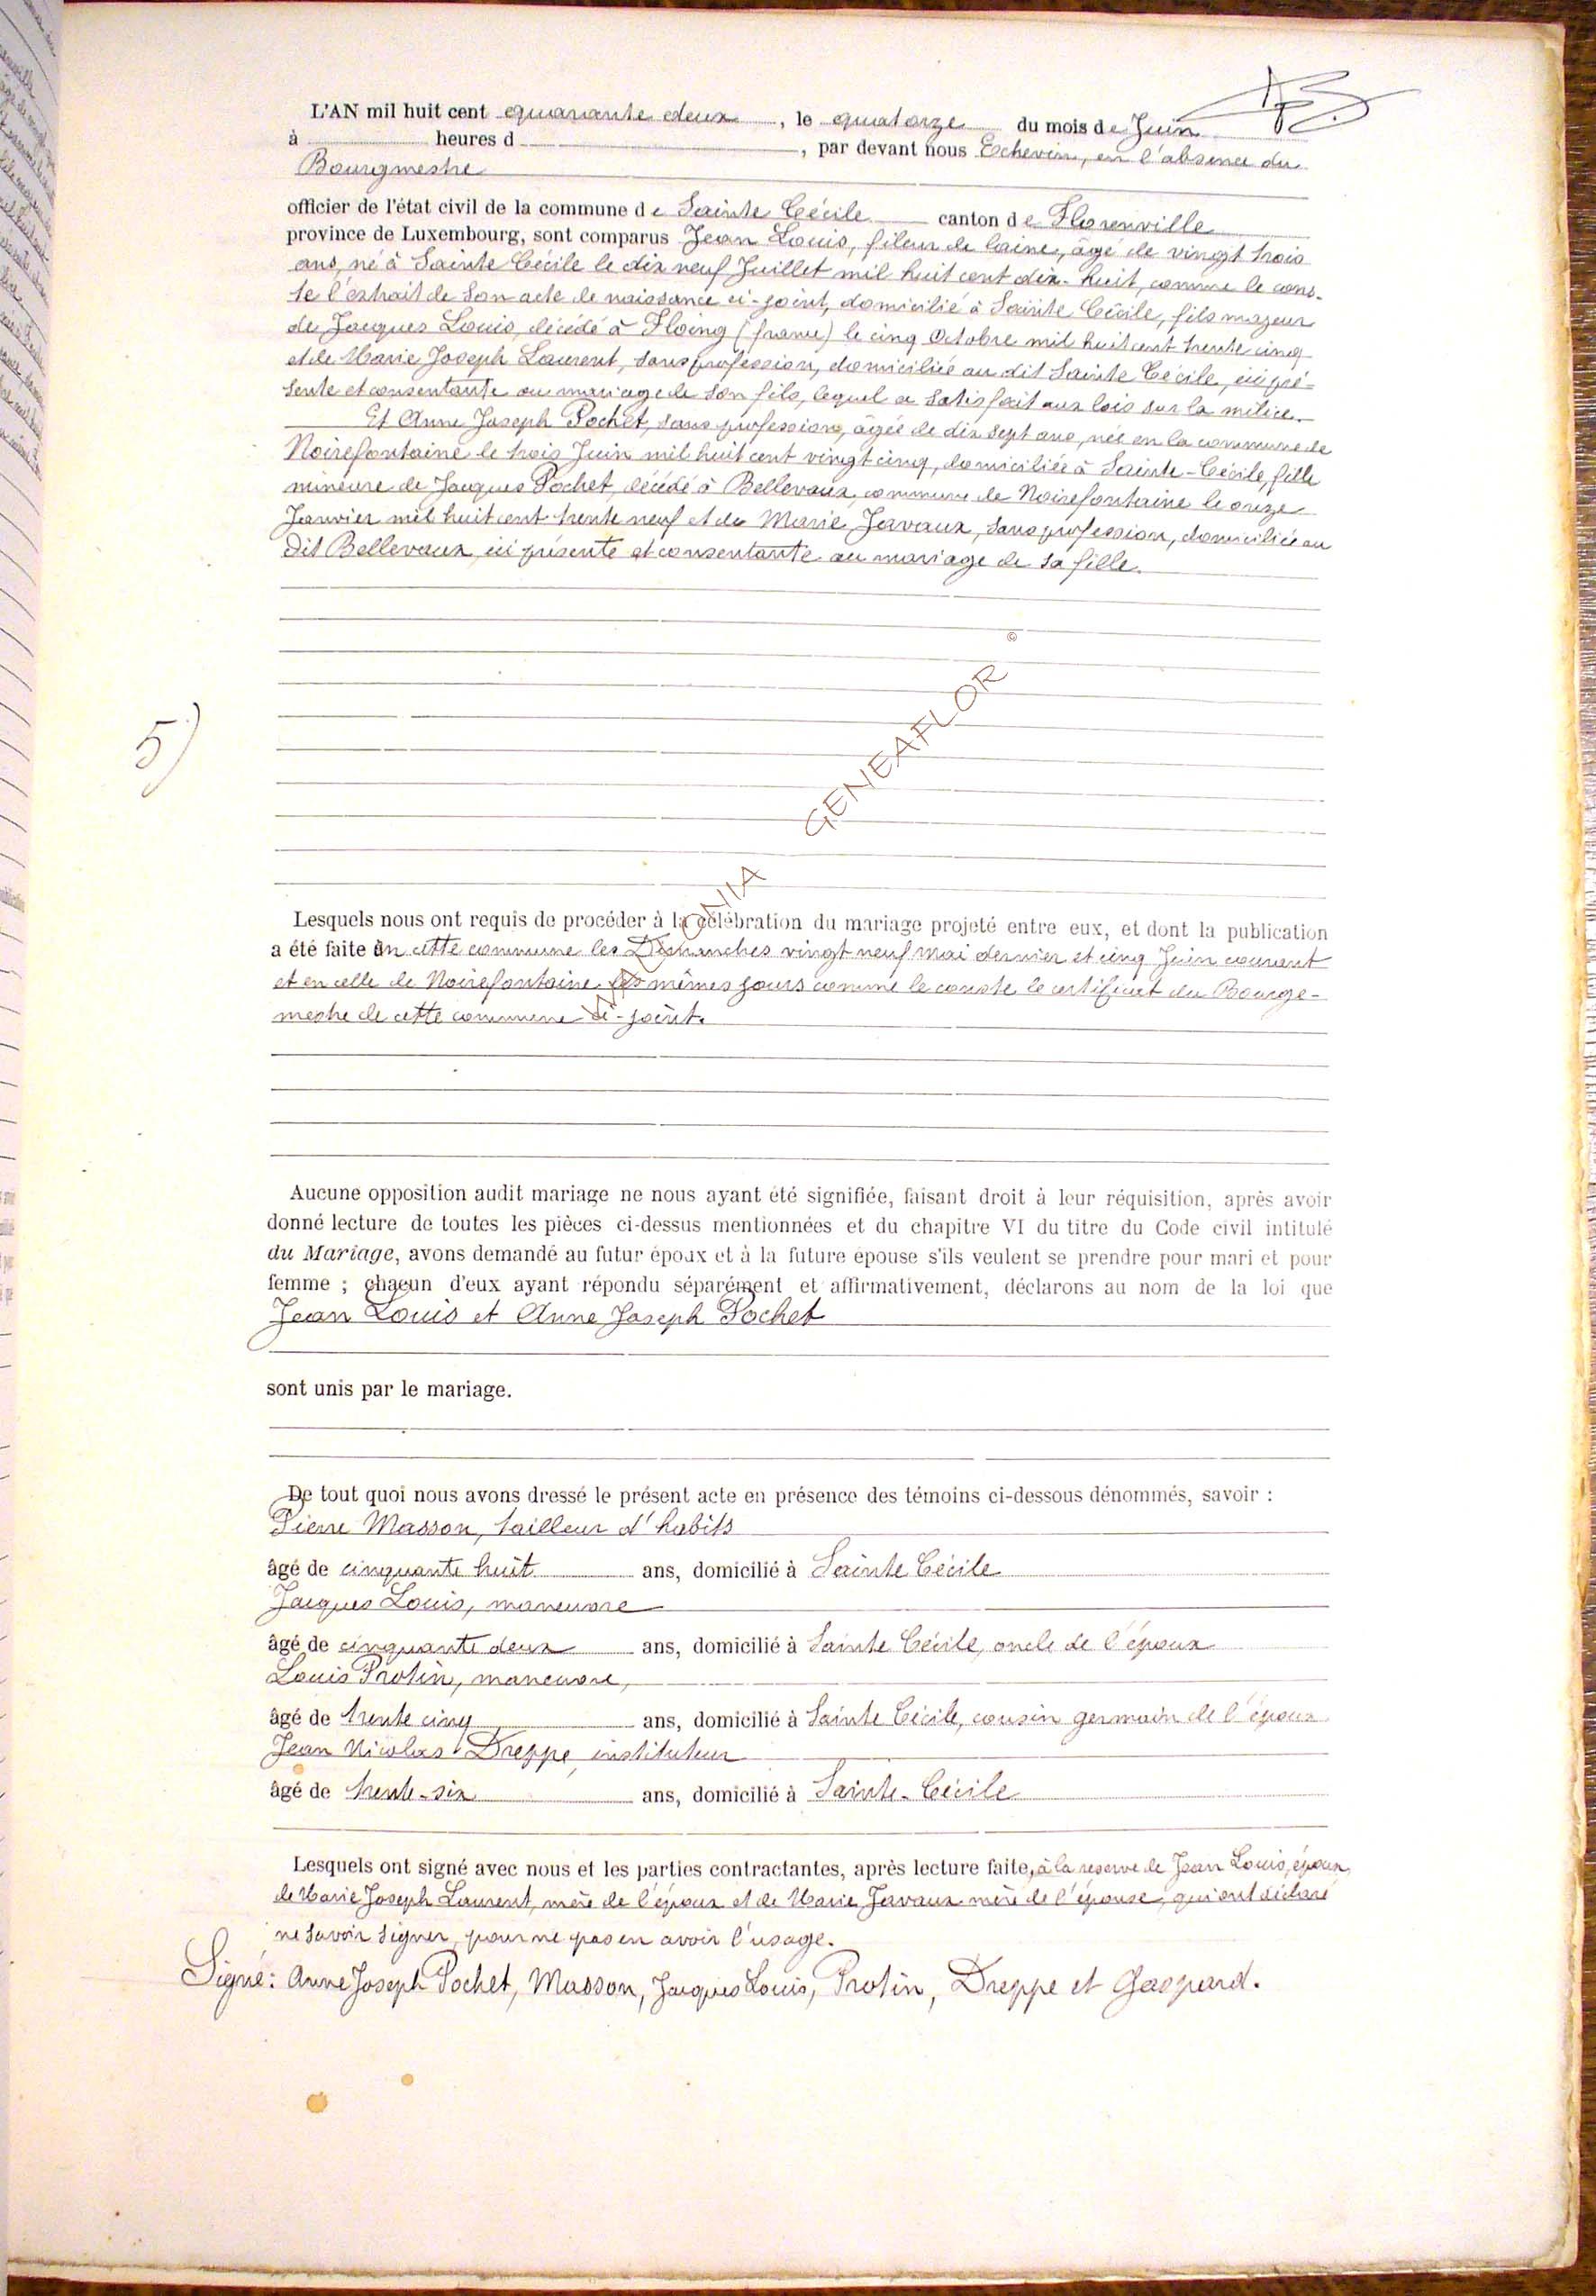 L'AN mil huit cent quarante deux, le quatorze du mois de Juin
à heures d , par devant nous Echevin, en l'absence du
Bourgmestre
officier de l'état civil de la commune de Sainte Cécile canton de Florenville
province de Luxembourg, sont comparus Jean Louis, fileur de laine, âgé de vingt trois
ans, né à Sainte Cécile le dix neuf Juillet mil huit cent dix-huit, comme le cons-
te l'extrait de son acte de naissance ci-joint, domicilié à Sainte Cécile, fils majeur
de Jacques Louis, décédé à Floing (france) le cinq Octobre mil huit cent trente cinq
et de Marie Joseph Laurent, sans profession, domiciliée au dit Sainte Cécile, ici pré-
sente et consentante au mariage de son fils, lequel a satisfait aux lois sur la milice.
Et Anne Joseph Pochet, sans profession, âgée de dix sept ans, née en la commune de
Noirefontaine le trois Juin mil huit cent vingt cinq, domiciliée à Sainte-Cécile, fille
mineure de Jacques Pochet, décédé à Bellevaux, commune de Noirefontaine le onze
Janvier mil huit cent trente neuf et de Marie Javaux, sans profession, domiciliée au
dit Bellevaux, ici présente et consentante au mariage de sa fille.
5)
WALLONIA GENEAFLOR ©
Lesquels nous ont requis de procéder à la célébration du mariage projeté entre eux, et dont la publication
a été faite en cette commune les Dimanches vingt neuf mai dernier et cinq Juin courant
et en celle de Noirefontaine les mêmes jours comme le conste le certificat du Bourge-
mestre de cette commune ci-joint.
Aucune opposition audit mariage ne nous ayant été signifiée, faisant droit à leur réquisition, après avoir
donné lecture de toutes les pièces ci-dessus mentionnées et du chapitre VI du titre du Code civil intitulé
du Mariage, avons demandé au futur époux et à la future épouse s'ils veulent se prendre pour mari et pour
femme ; chacun d'eux ayant répondu séparément et affirmativement, déclarons au nom de la loi que
Jean Louis et Anne Joseph Pochet
sont unis par le mariage.
De tout quoi nous avons dressé le présent acte en présence des témoins ci-dessous dénommés, savoir :
Pierre Masson, tailleur d'habits
âgé de cinquante huit ans, domicilié à Sainte Cécile
Jacques Louis, maneuvre
âgé de cinquante deux ans, domicilié à Sainte Cécile, oncle de l'époux
Louis Protin, maneuvre,
âgé de trente cinq ans, domicilié à Sainte Cécile, cousin germain de l'époux
Jean Nicolas Dreppe, instituteur
âgé de trente-six ans, domicilié à Sainte-Cécile
Lesquels ont signé avec nous et les parties contractantes, après lecture faite, à la reserve de Jean Louis, époux,
de Marie Joseph Laurent, mère de l'époux et de Marie Javaux mère de l'épouse, qui ont déclaré
ne savoir signer, pour ne pas en avoir l'usage.
Signé: Anne Joseph Pochet, Masson, Jacques Louis, Protin, Dreppe et Gaspard.